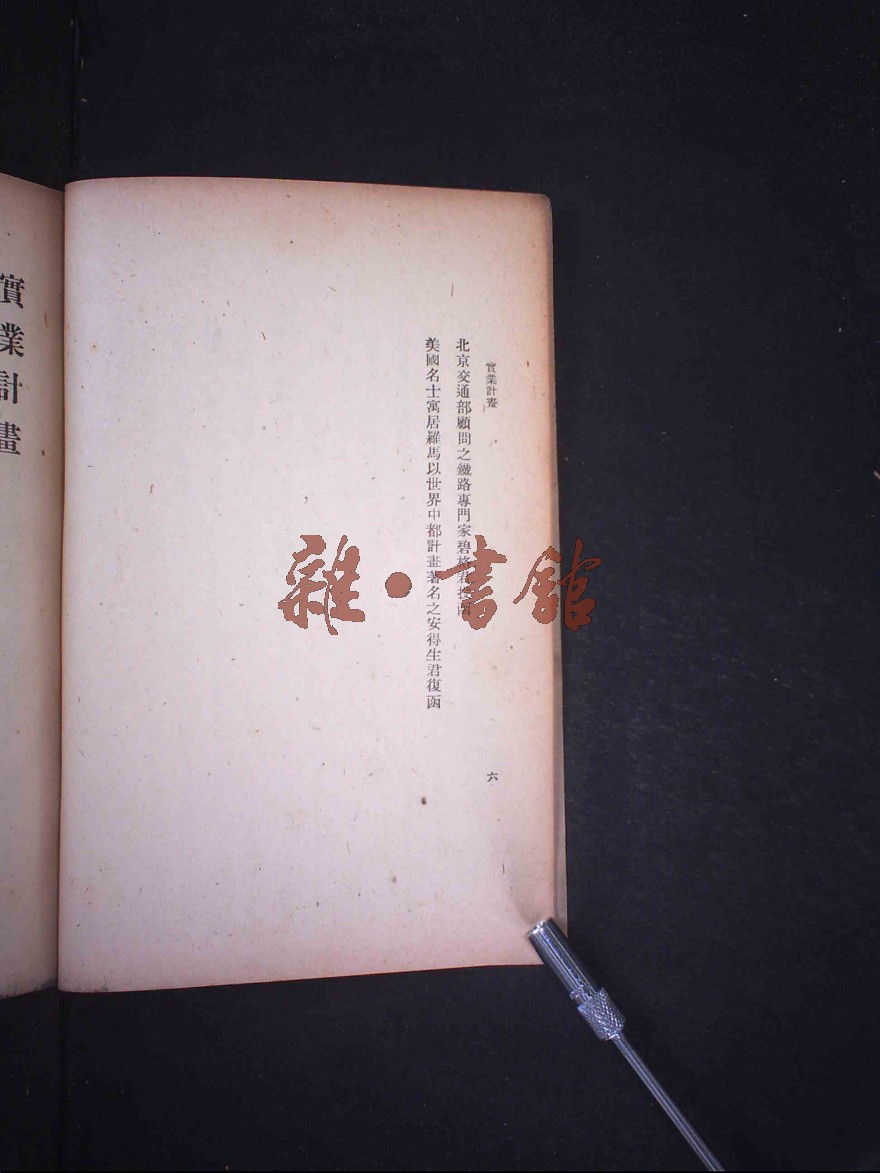 實業計畫
北京交通部顧問之鐵路專門家碧格君投函
美國名士寓居羅馬以世界中都計畫著名之安得生君復函
六
實業計畫
雜·書館